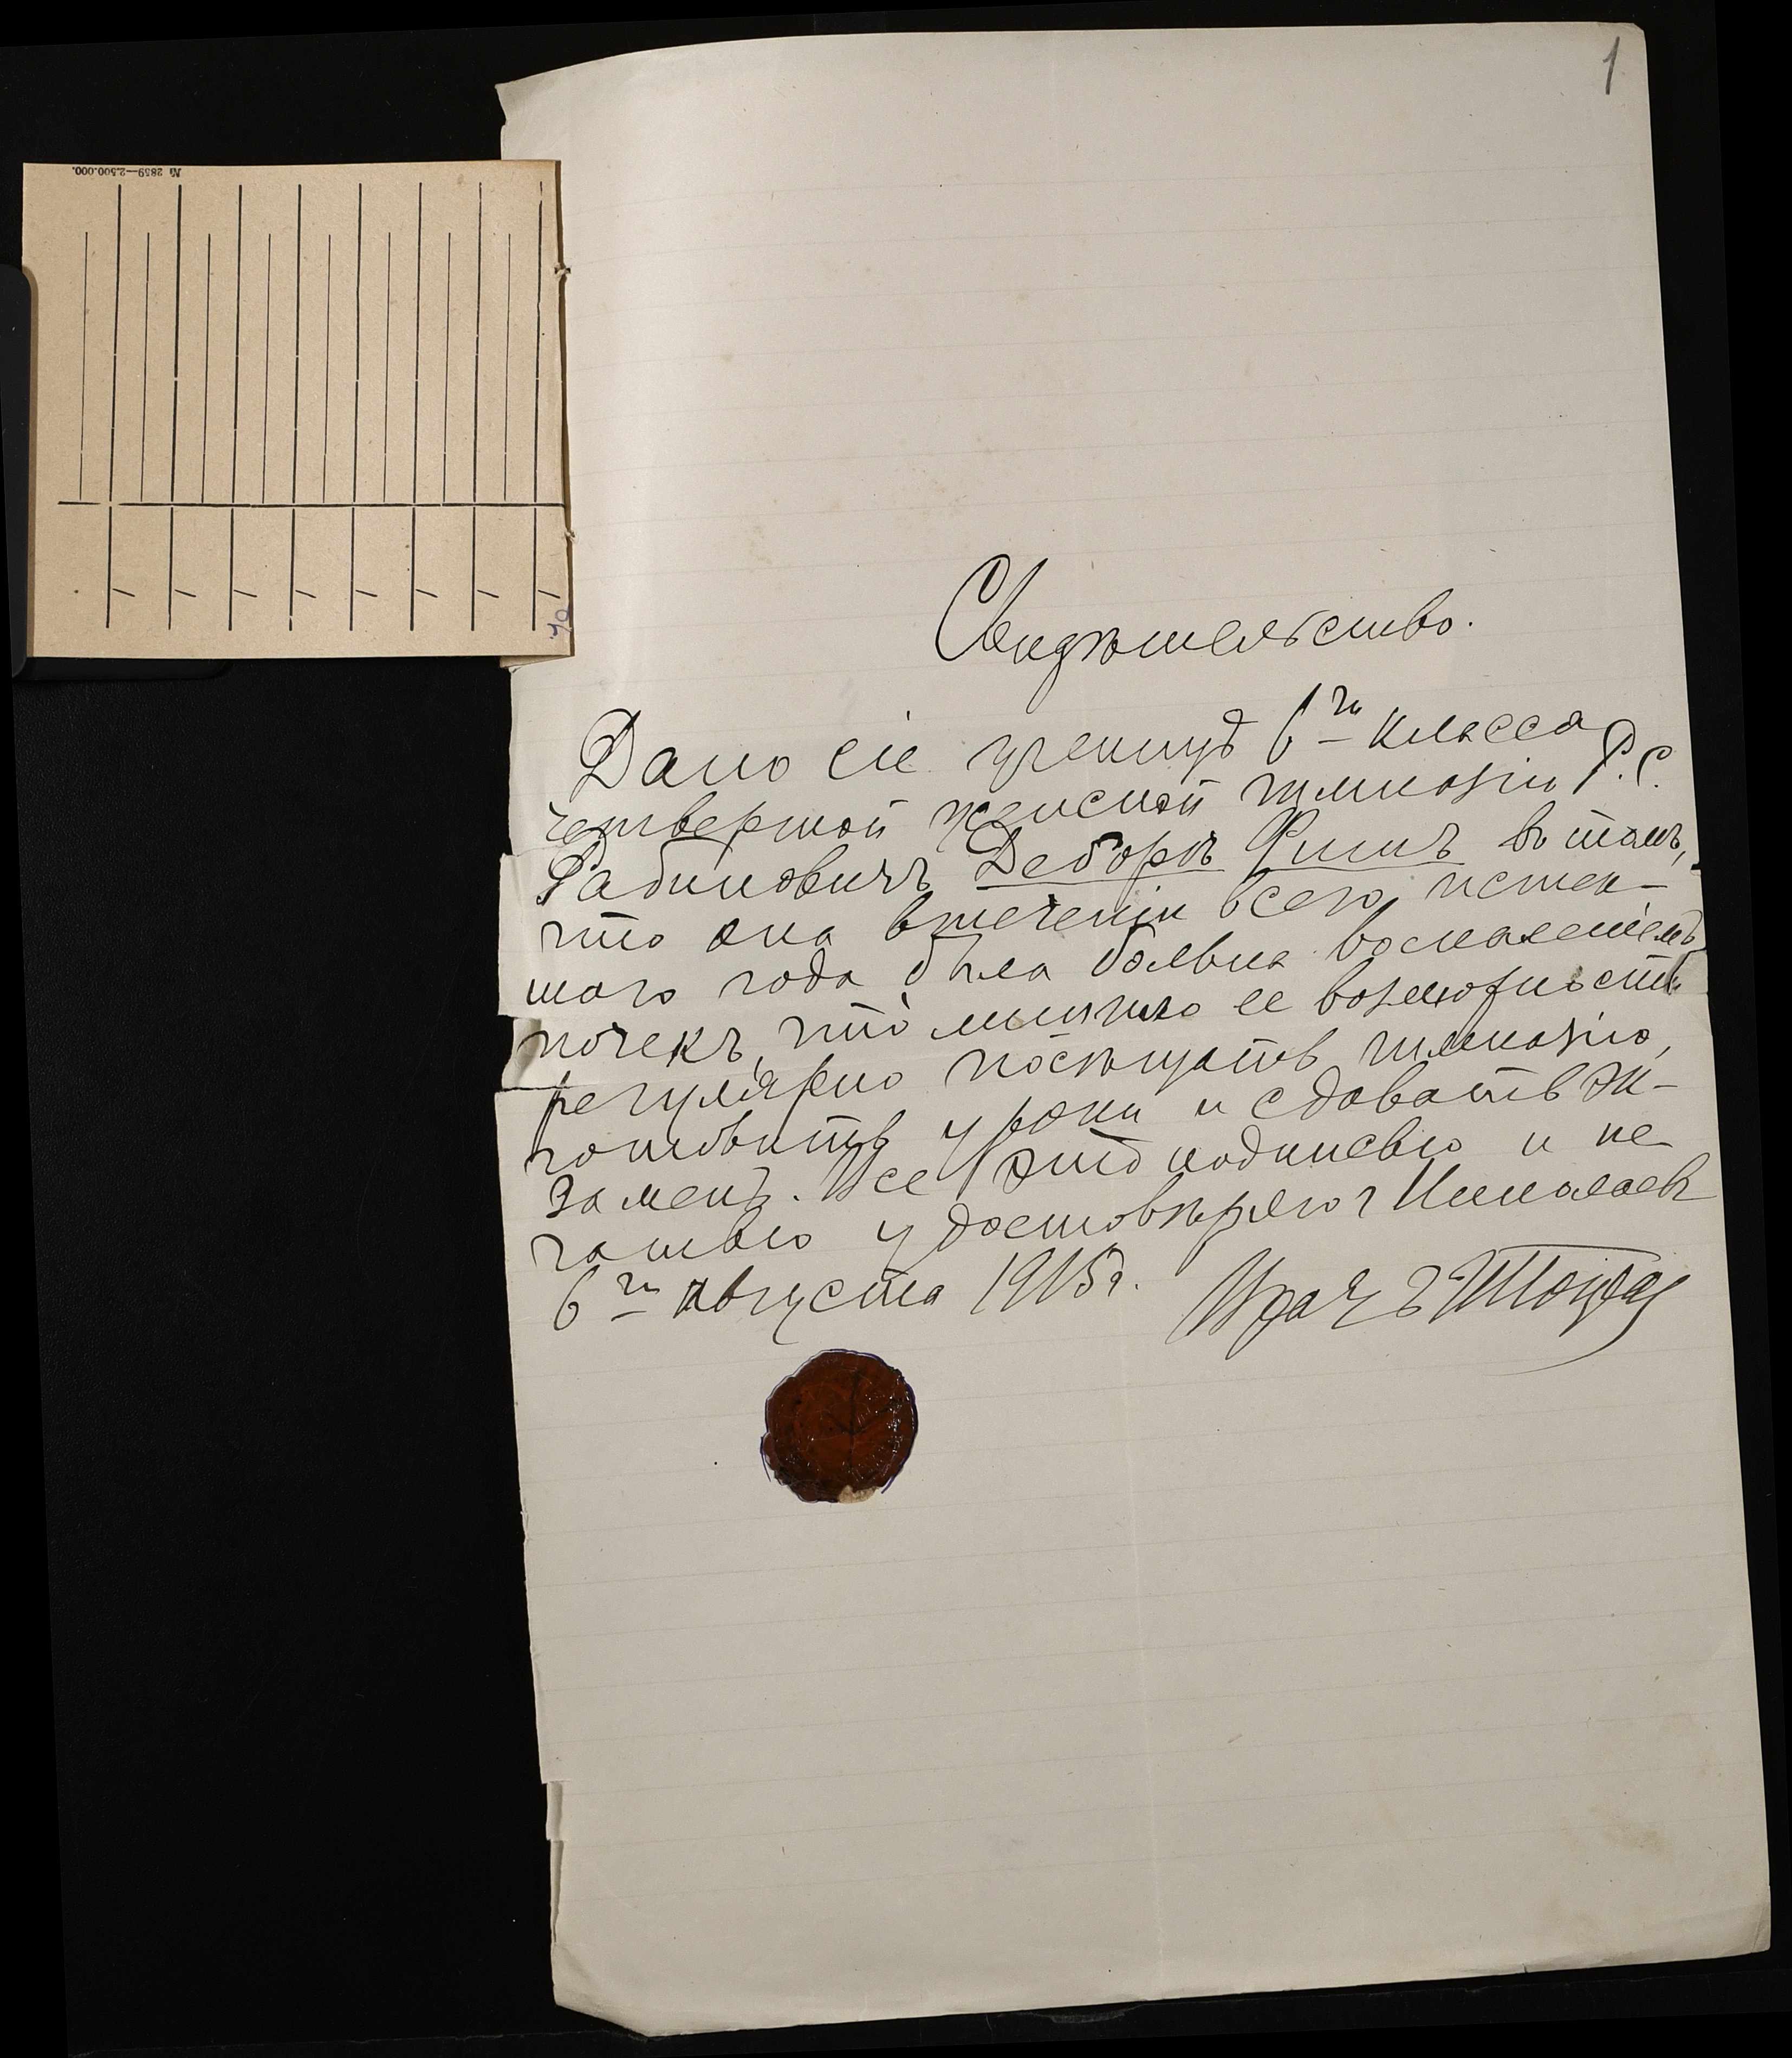 1
№ 2859—2.500.000.
Свидѣтельство.
Дано сіе ученицѣ 6го класса
четвертой женской гимназіи Р. С.
Рабиновичъ Деборѣ Фишъ въ томъ,
что она втеченіи всего истек-
шаго года была больна воспаленіемъ
почекъ, что лишило ее возможности
регулярно посѣщать гимназію,
готовить уроки и сдавать эк-
заменъ. Все это подписью и пе-
чатью удостовѣряю г Николаевъ
6го августа 1915г. Врачъ